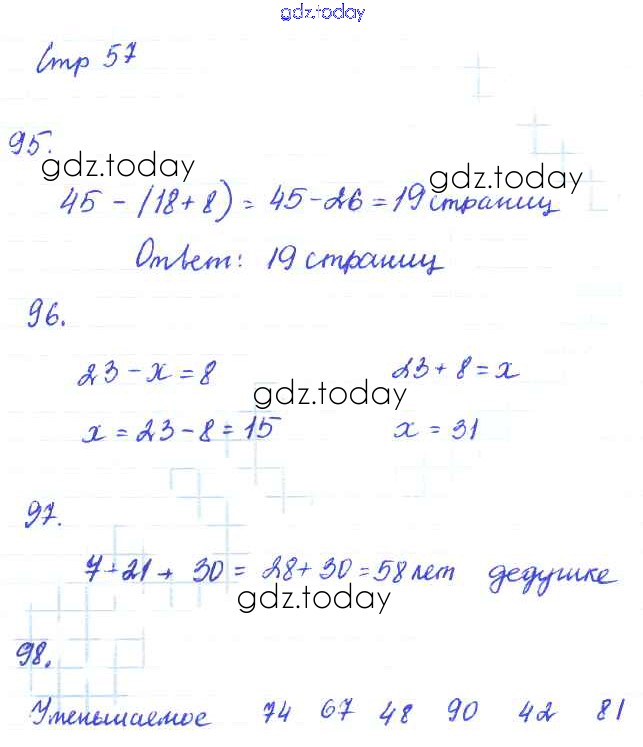 gdz.today
Стр 57
95.
gdz.today
gdz.today
45 - (18 + 8) = 45 - 26 = 19 страниц
Ответ: 19 страниц
96.
23 - x = 8 23 + 8 = x
gdz.today
x = 23 - 8 = 15 x = 31
97.
7 + 21 + 30 = 28 + 30 = 58 лет дедушке
gdz.today
98.
Уменьшаемое 74 67 48 90 42 81